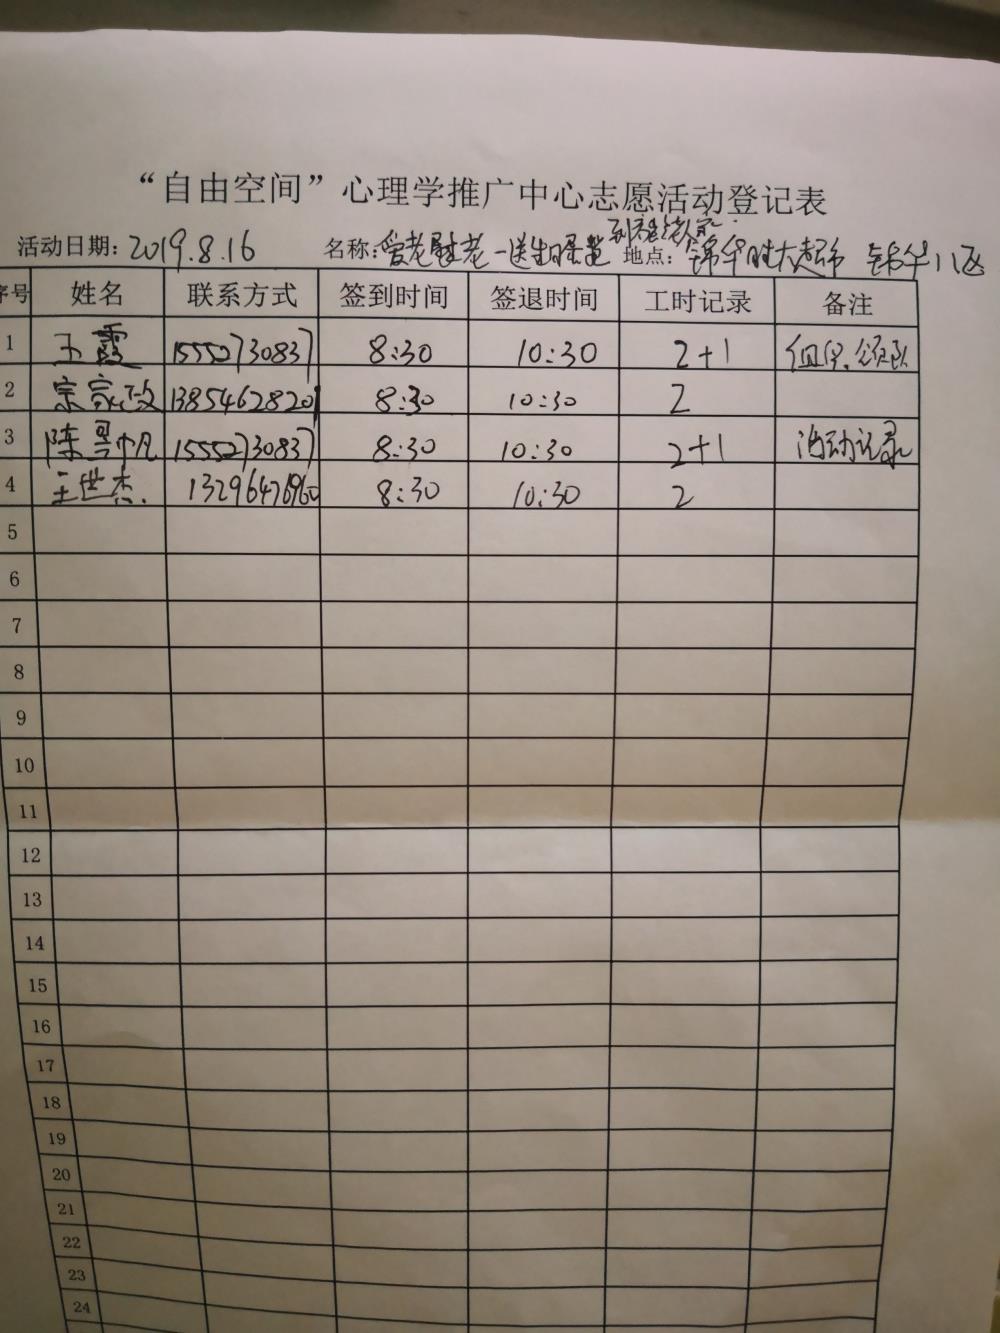 “自由空间”心理学推广中心志愿活动登记表
活动日期：2019.8.16 名称：爱老慰老一送生日蛋糕 到 老人家 地点：锦华 大超市 锦华八区
序号 姓名 联系方式 签到时间 签退时间 工时记录 备注
1 王霞 15552730837 8:30 10:30 2+1 组织,领队
2 宗家政 13854628201 8:30 10:30 2
3 陈 帆 15552730837 8:30 10:30 2+1 活动记录
4 王世杰. 13296476960 8:30 10:30 2
5
6
7
8
9
10
11
12
13
14
15
16
17
18
19
20
21
22
23
24